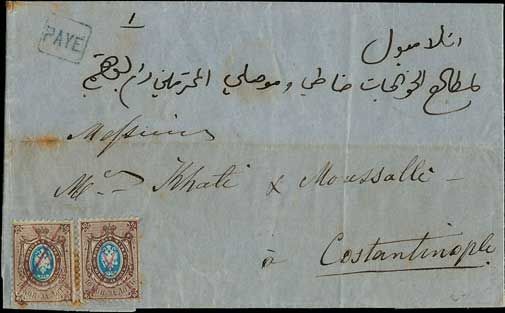 1
PAYE
انلامبول
لمطالع الخواجات خاطي وموصلي المحترمين دام بقاهم
Messieurs
Mrs Khati & Moussalli
à Costantinople